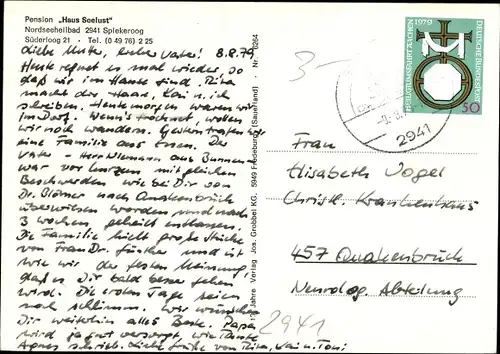 Pension „Haus Seelust"
Nordseeheilbad 2941 Spiekeroog
Süderloog 21 · Tel. (0 49 76) 2 25
Liebe Mutter, lieber Vater! 8.8.79
Heute regnet es mal wieder so
daß wir im Hause sind. Rita
macht der Haar, Kai u. ich
schreiben. Heute morgen waren wir
im Dorf. Wenn's trocknet, wollen
wir noch wandern. Gestern trafen wir
eine Familie aus Essen. Der
Vater – Herr Niemann aus
war vor kurzem mit gleichen
Beschwerden wie bei Dir von
Dr. nach Quakenbrück
überwiesen worden und nach
3 Wochen geheilt entlassen.
Die Familie hielt große Stücke
von Frau Dr. und ist
wie wir der festen Meinung,
daß es Dir bald besser gehen
wird. Die ersten Tage seien
noch schlimm. Wir wünschen
Dir weiterhin alles Beste. Papa
wird ja gut versorgt, wie Tante
Agnes schrieb. Liebe Grüße von Rita, Kai u. Toni
Jahre Verlag Jos. Grobbel KG, 5949 Fredeburg (Sauerland) · Nr. 0264
1979
DEUTSCHE BUNDESPOST
HEILIGTUMSFAHRT AACHEN
50
2941
3-
Frau
Elisabeth Vogel
Christl. Krankenhaus
457 Quakenbrück
Neurolog. Abteilung
2941